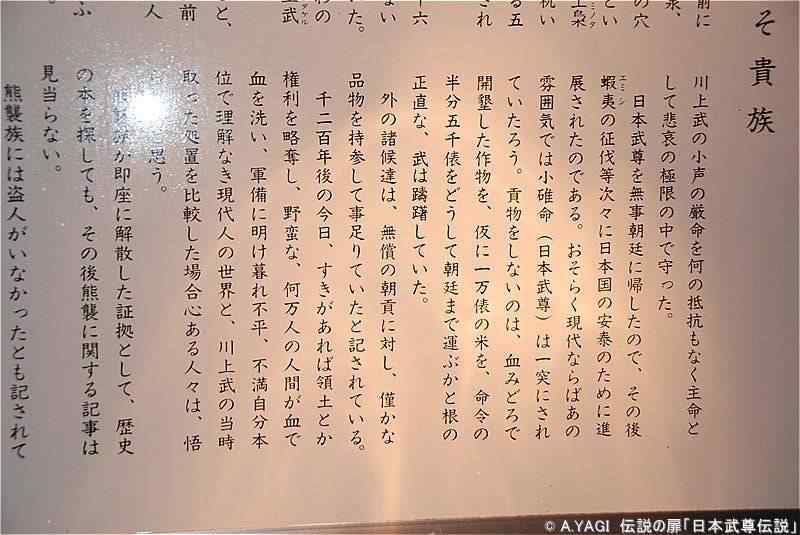 そ貴族
前に
泉、
の穴
とい
上梟
祝い
る五
され
十六
ない
た。
の
武
と、
前
人
ふ
川上武の小声の厳命を何の抵抗もなく主命と
して悲哀の極限の中で守った。
日本武尊を無事朝廷に帰したので、その後
蝦夷の征伐等次々に日本国の安泰のために進
展されたのである。おそらく現代ならばあの
雰囲気では小碓命（日本武尊）は一突にされ
ていたろう。貢物をしないのは、血みどろで
開墾した作物を、仮に一万俵の米を、命令の
半分五千俵をどうして朝廷まで運ぶかと根の
正直な、武は躊躇していた。
外の諸候達は、無償の朝貢に対し、僅かな
品物を持参して事足りていたと記されている。
千二百年後の今日、すきがあれば領土とか
権利を略奪し、野蛮な、何万人の人間が血で
血を洗い、軍備に明け暮れ不平、不満自分本
位で理解なき現代人の世界と、川上武の当時
取った処置を比較した場合心ある人々は、悟
思う。
が即座に解散した証拠として、歴史
の本を探しても、その後熊襲に関する記事は
見当らない。
熊襲族には盗人がいなかったとも記されて
© A.YAGI 伝説の扉「日本武尊伝説」